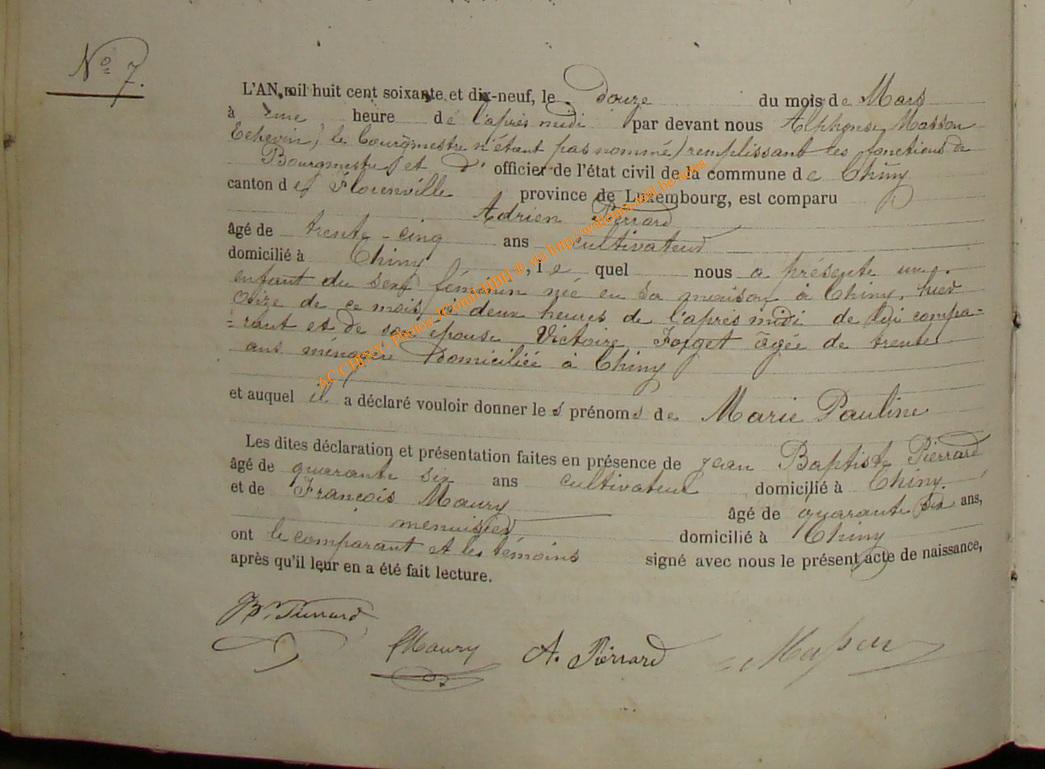 Nº 7.
L'AN mil huit cent soixante et dix-neuf, le douze du mois de Mars
à une heure de l'après midi par devant nous Alphonse Masson
Echevin, le bourgmestre n'étant pas nommé, remplissant les fonctions de
Bourgmestre et d' officier de l'état civil de la commune de Chiny
canton de Florenville province de Luxembourg, est comparu
Adrien Pierrard
âgé de trente-cinq ans cultivateur
domicilié à Chiny, le quel nous a présenté un
enfant du sexe féminin née en sa maison à Chiny, hier
onze de ce mois, à deux heures de l'après midi de lui compa=
=rant et de son épouse Victoire Forget âgée de trente
ans ménagère domiciliée à Chiny
et auquel il a déclaré vouloir donner les prénoms de Marie Pauline
Les dites déclaration et présentation faites en présence de Jean Baptiste Pierrard
âgé de quarante six ans cultivateur domicilié à Chiny
et de François Maury âgé de quarante six ans,
menuisier domicilié à Chiny
ont le comparant et les témoins signé avec nous le présent acte de naissance,
après qu'il leur en a été fait lecture.
JBte Pierrard
FMaury A. Pierrard Masson